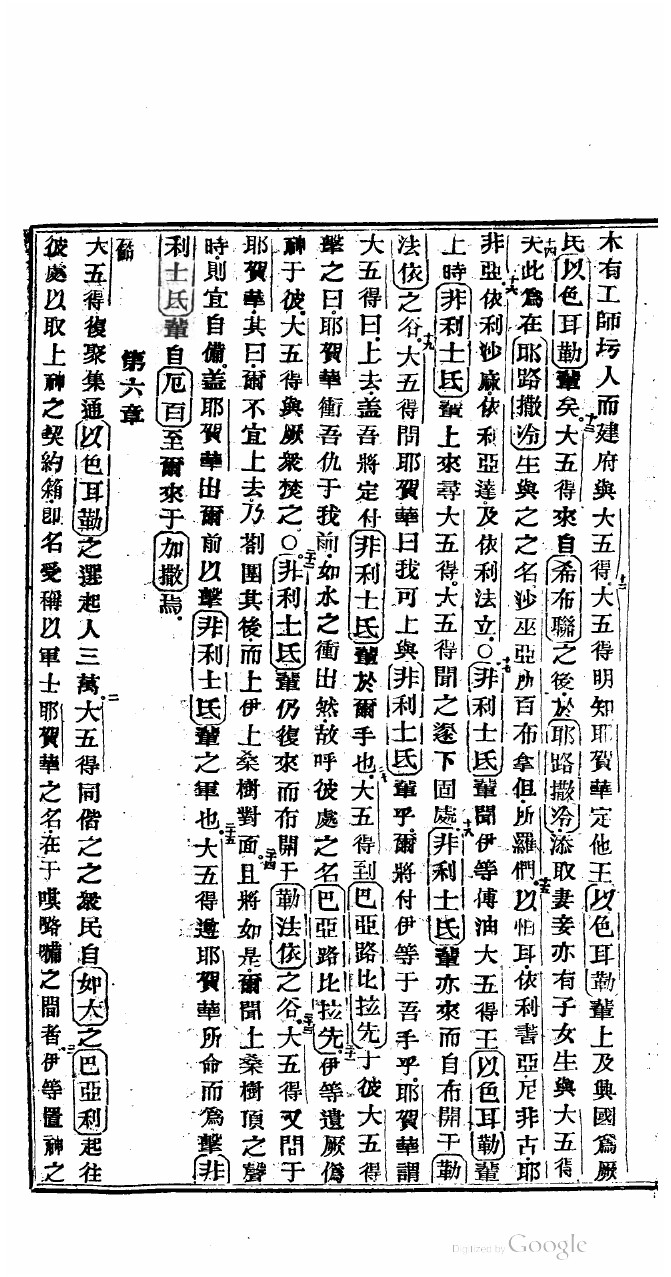 木有工師圬人而建府與大五得十二大五得明知耶賀華定他王以色耳勒輩上及興國爲厥
民以色耳勒輩矣十三大五得來自希布聯之後於耶路撒冷添取妻妾亦有子女生與大五得
十四夫此爲在耶路撒冷生與之之名沙巫亞所百布拿但所羅們十五以怕耳依利書亞尼非古耶
非亞十六依利沙麻依利亞達及依利法立○十七非利士氏輩聞伊等傅油大五得王以色耳勒輩
上時非利士氏輩上來尋大五得大五得聞之遂下固處十八非利士氏輩亦來而自布開于勒
法依之谷十九大五得問耶賀華曰我可上與非利士氏輩乎爾將付伊等于吾手乎耶賀華謂
大五得曰上去蓋吾將定付非利士氏輩於爾手也二十大五得到巴亞路比拉先于彼大五得
擊之曰耶賀華衝吾仇于我前如水之衝出然故呼彼處之名巴亞路比拉先二十一伊等遺厥偽
神于彼大五得與厥衆焚之○二十二非利士氏輩仍復來而布開于勒法依之谷二十三大五得又問于
耶賀華其曰爾不宜上去乃劄團其後而上伊上桑樹對面二十四且將如是爾聞上桑樹頂之聲
時則宜自備蓋耶賀華出爾前以擊非利士氏輩之軍也二十五大五得遵耶賀華所命而爲擊非
利士氏輩自厄百至爾來于加撒焉
第六章
一節
大五得復聚集通以色耳勒之選起人三萬二大五得同偕之之衆民自如大之巴亞利起往
彼處以取上神之契約箱即名受稱以軍士耶賀華之名在于㖼路嘣之間者三伊等置神之
Digitized by Google